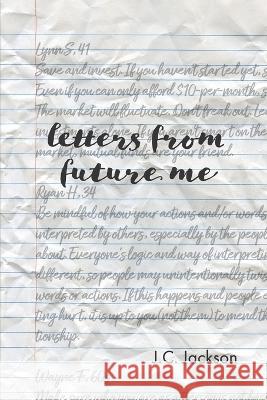 Lynn S, 41
Save and invest. If you haven't started yet, s
Even if you can only afford $10-per-month, s
The market will fluctuate. Don't freak out. Le
letters from
market, mutual funds are your friend.
future me
Ryan H, 34
Be mindful of how your actions and/or words
interpreted by others, especially by the people
about. Everyone's logic and way of interpretin
different, so people may unintentionally twis
words or actions. If this happens and people e
ting hurt, it is up to you (not them) to mend th
tionship.
J.C. Jackson
Wayne F, 60